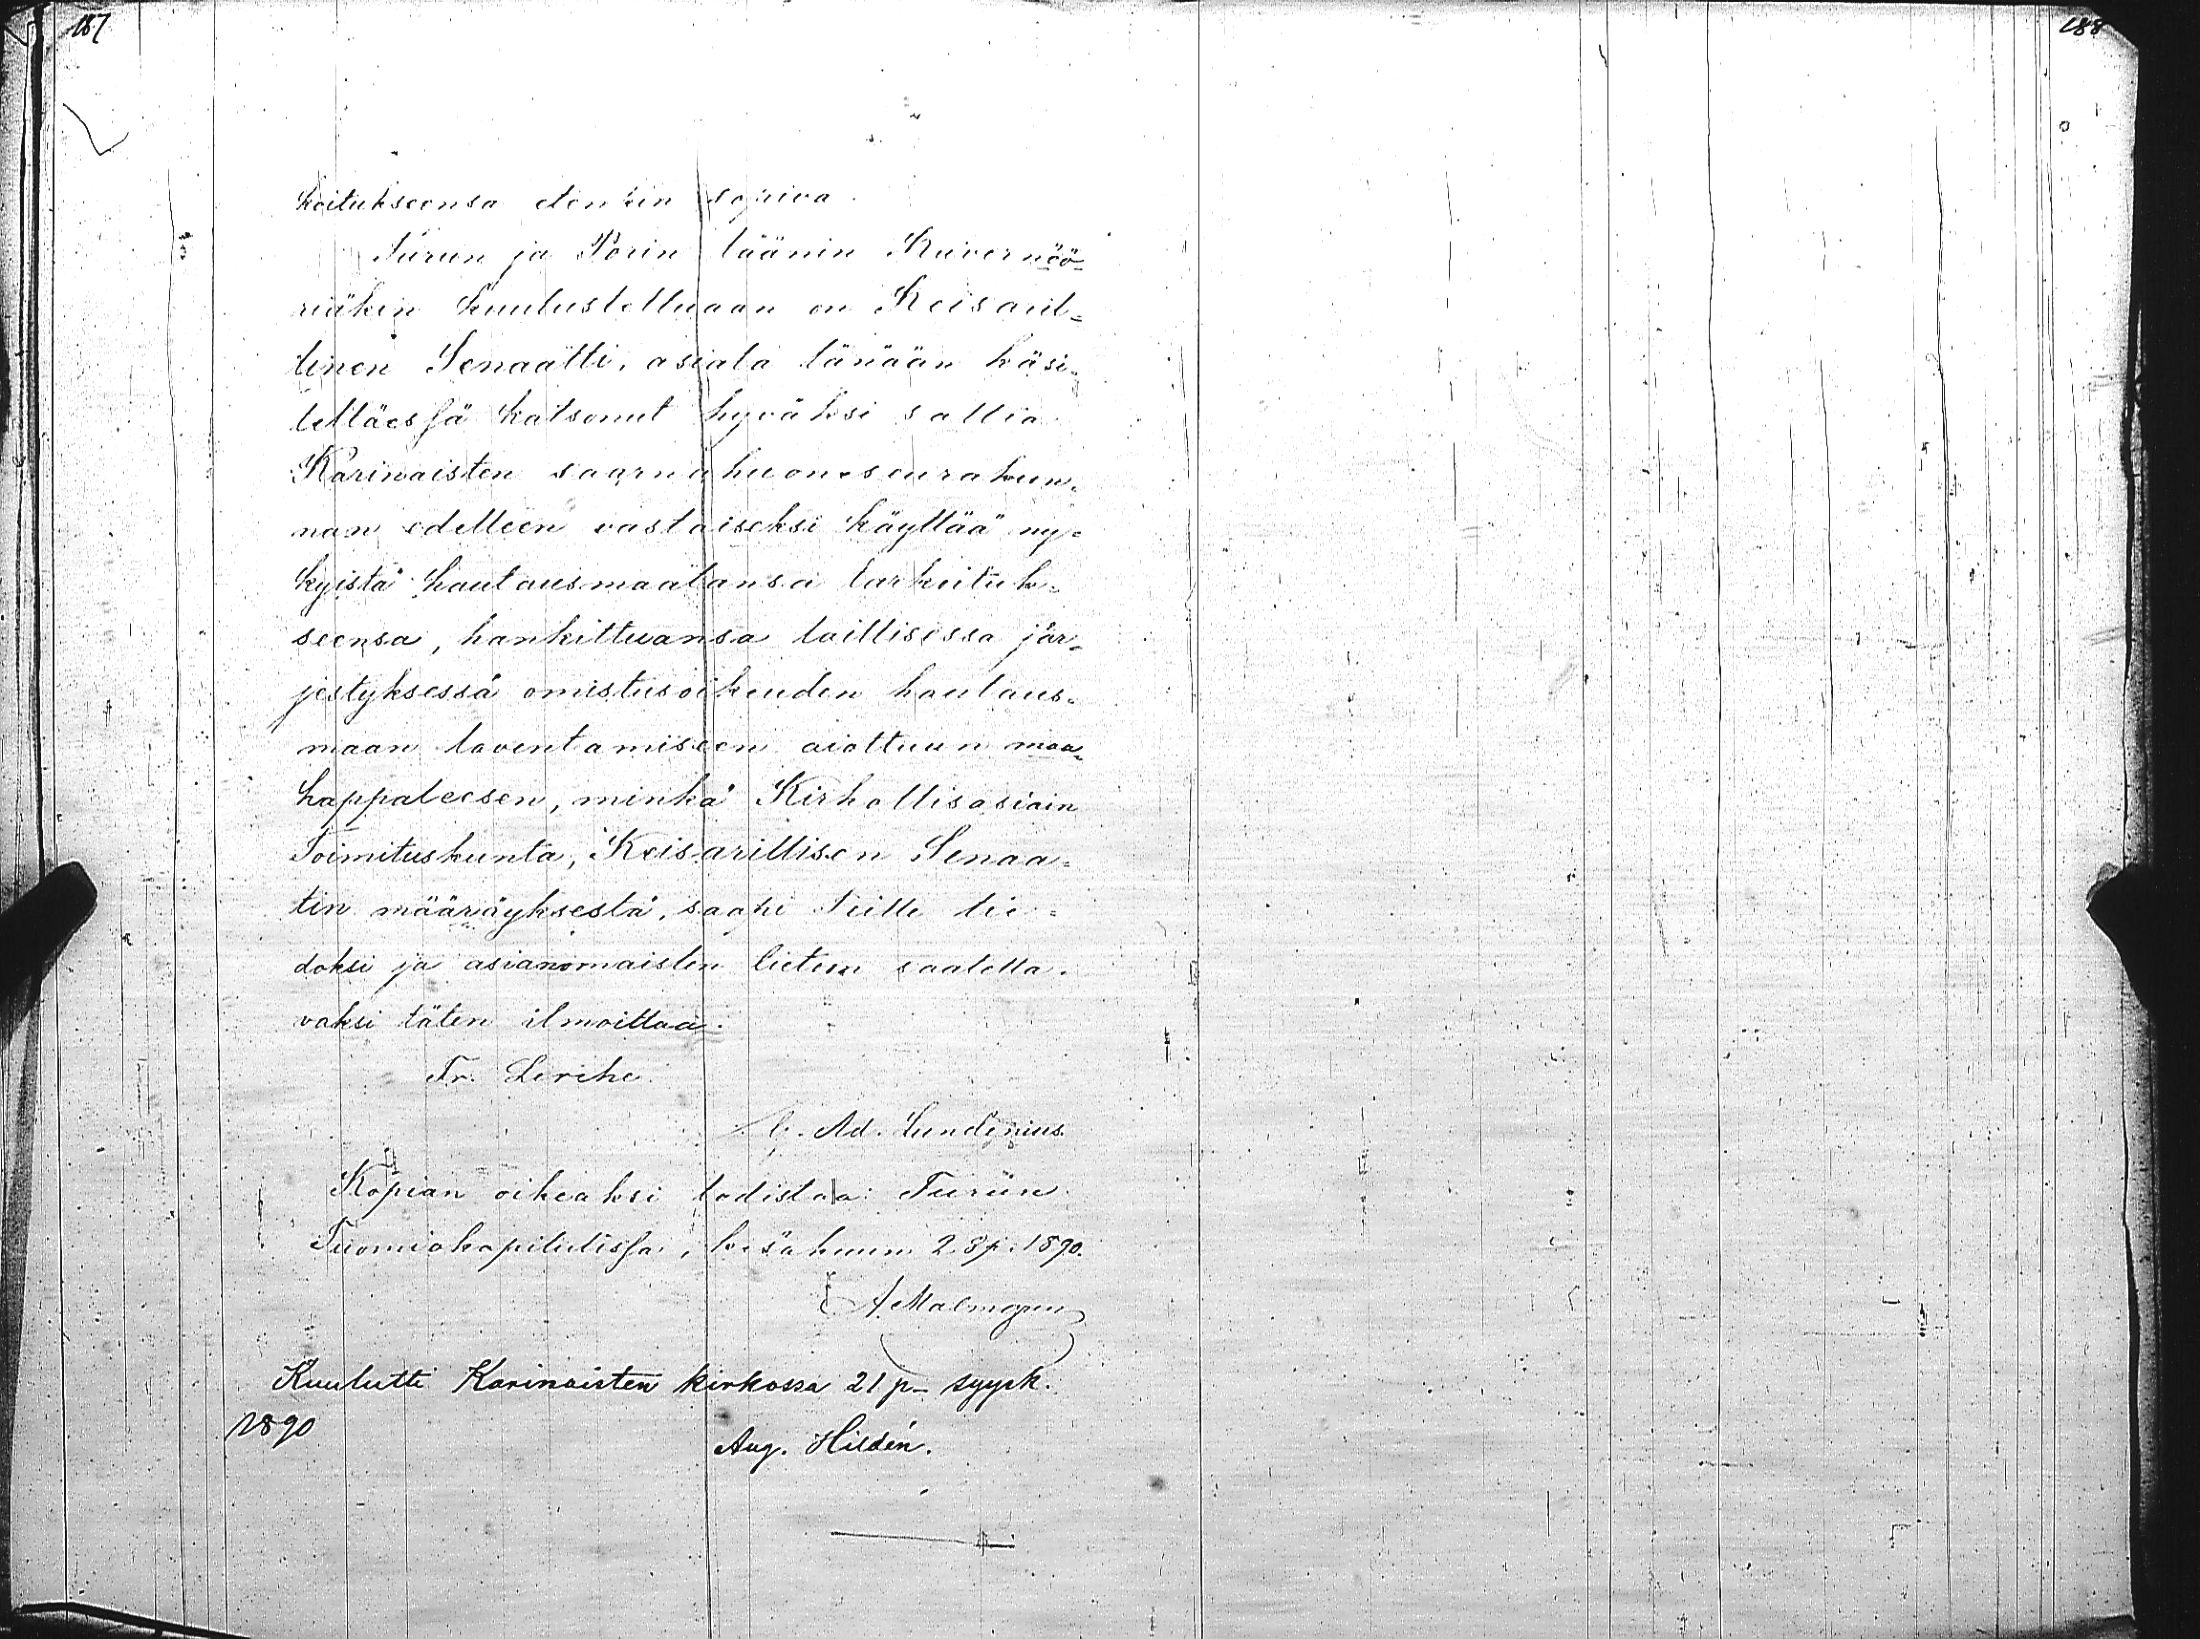 187
188
koitukseensa etenkin sopiva.
Turun ja Porin läänin Kuvernöö=
riäkin kuulusteltuaan on Keisaril=
linen Senaatti, asiata tänään käsi=
teltäesſä katsonut hyväksi sallia
Karinaisten saarnahuoneseurakun=
nan edelleen vastaiseksi käyttää ny=
kyistä hautausmaatansa tarkoituk=
seensa, hankittuansa laillisessa jär=
jestyksessä omistusoikeuden hautaus=
maan laventamiseen aiottuun maa=
kappaleesen, minkä Kirkollisasiain
Toimituskunta, Keisarillisen Senaa=
tin määräyksestä, saapi Teille tie=
doksi ja asianomaisten tietoon saatetta=
vaksi täten ilmoittaa.
Fr. Lerche.
C. Ad. Lundenius.
Kopian oikeaksi todistaa: Turun
Tuomiokapitulisſa, kesäkuun 28 p. 1890.
A. Malmgren
Kuulutti Karinaisten kirkossa 21 p- syysk.
1890
Aug. Hildén.